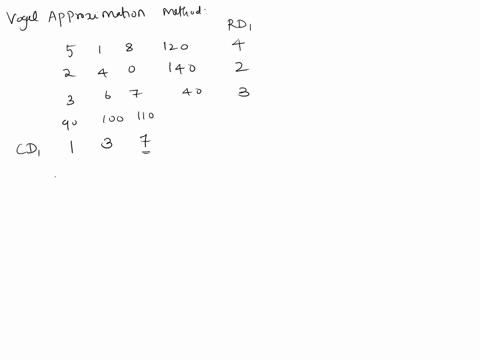 Vogel Approximation Method:
RD1
5 1 8 120 4
2 4 0 140 2
3 6 7 40 3
90 100 110
CD1 1 3 7